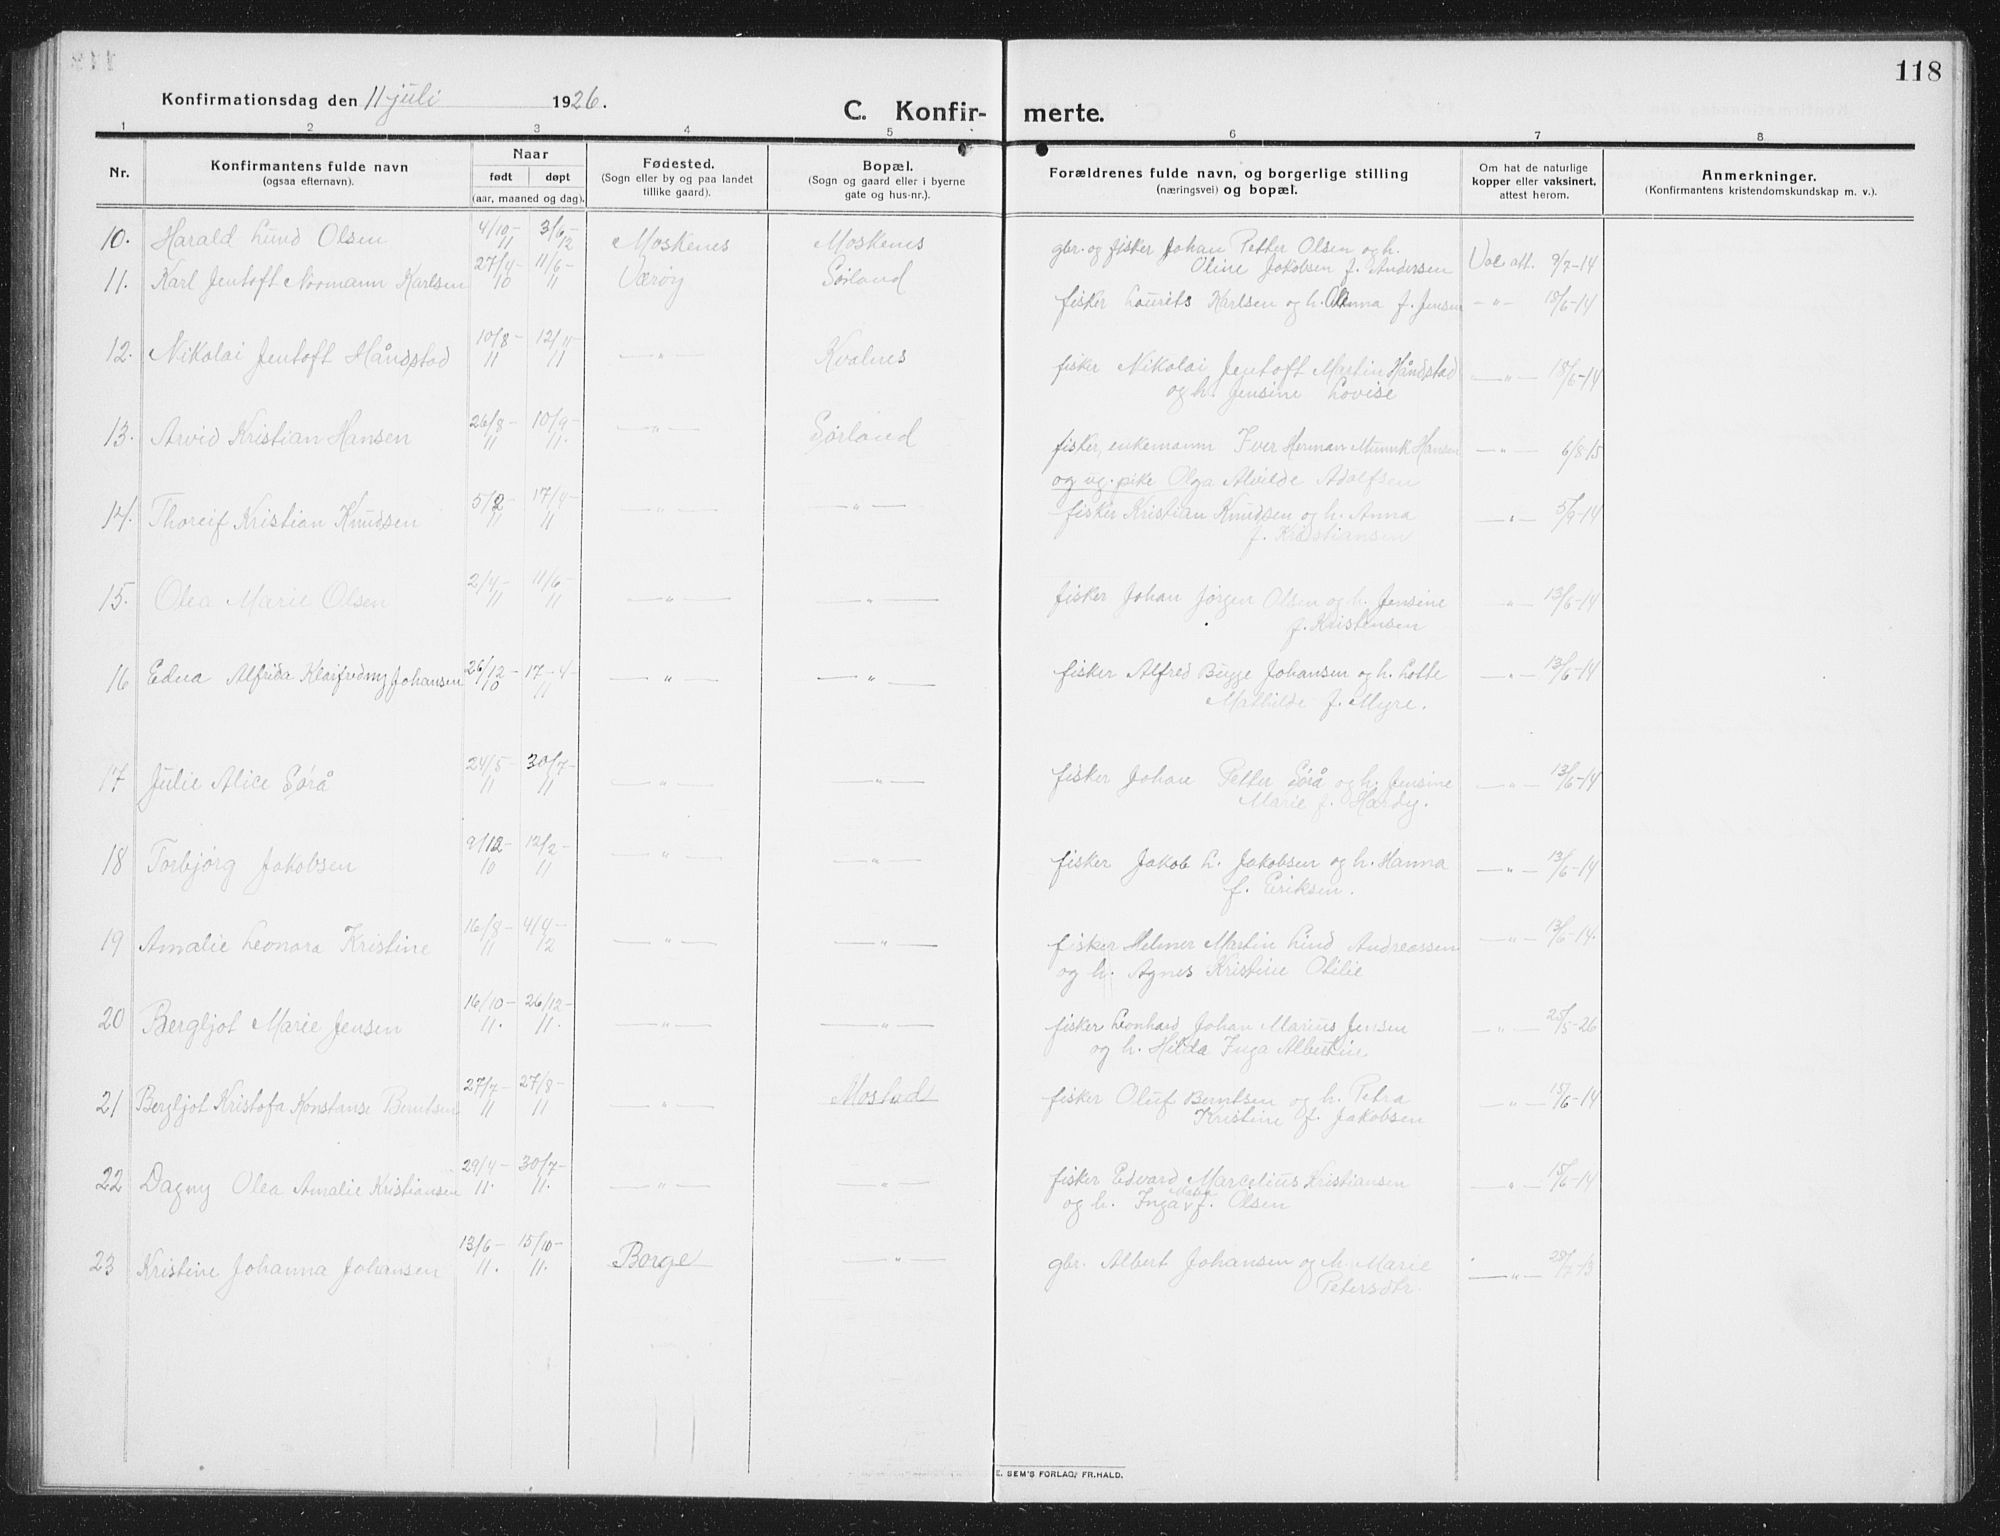 118
Konfirmationsdag den 11 juli 1926.
C. Konfir- merte.
1 2 3 4 5 6 7 8
Nr.
Konfirmantens fulde navn
(ogsaa efternavn).
Naar
født døpt
(aar, maaned og dag).
Fødested.
(Sogn eller by og paa landet
tillike gaard).
Bopæl.
(Sogn og gaard eller i byerne
gate og hus-nr.).
Forældrenes fulde navn, og borgerlige stilling
(næringsvei) og bopæl.
Om hat de naturlige
kopper eller vaksinert,
attest herom.
Anmerkninger.
(Konfirmantens kristendomskundskap m. v.).
10. Harald Lund Olsen 4/10-11 3/6-12 Moskenes Moskenes gbr. og fisker Johan Petter Olsen og h.
Oline Jakobsen f. Andersen Vac att. 9/7-14
11. Karl Jentoft Normann Karlsen 27/4-10 11/6-11 Værøy Sørland
fisker Lourits Karlsen og h. Anna f. Jensen -"- 18/6-14
12. Nikolai Jentoft Håndstad 10/8-11 12/11-11 -"- Kvalnes fisker Nikolai Jentoft Martin Håndstad
og h. Jensine Lovise -"- 18/6-14
13. Arvid Kristian Hansen 26/8-11 10/9-11. -"- Sørland fisker, enkemann Iver Herman Munk Hansen
og ug. pike Olga Alvilde Adolfsen -"- 6/8-15
14. Thoreif Kristian Knudsen 5/2-11 17/4-11 -"- -"- fisker Kristian Knudsen og h. Anna
f. Kristiansen -"- 5/9-14
15. Olea Marie Olsen 2/4-11 11/6-11 -"- -"- fisker Johan Jørgen Olsen og h. Jensine
f. Kristensen -"- 13/6-14
16 Edna Alfrida Johansen 26/12-10 17-4-11 -"- -"- fisker Alfred Bugge Johansen og h. Lotte
Mathilde f. Myre. -"- 13/6-14
17 Julie Alice Sørå 24/5-11 30/7-11 -"- -"- fisker Johan Petter Sørå og h. Jensine
Marie f. Hardy. -"- 13/6-14
18 Torbjørg Jakobsen 9/12-10 12/2-11 -"- -"- fisker Jakob L. Jakobsen og h. Hanna
f. Eriksen. -"- 13/6-14
19 Amalie Leonora Kristine 16/8-11 4/4-12 -"- -"- fisker Helmer Martin Lind Andreassen
og h. Agnes Kristine Otilie -"- 13/6-14.
20 Bergljot Marie Jensen 16/10-11. 26/12-11. -"- -"- fisker Leonhard Johan Marius Jensen
og h. Hilda Inga Albertine -"- 25/5-26
21 Bergljot Kristofa Konstanse Berntsen 27/7-11 27/8-11 -"- Mostad fisker Oluf Berntsen og h. Petra
Kristine f. Jakobsen -"- 15/6-14
22 Dagny Olea Amalie Kristiansen 29/4-11. 30/7-11. -"- -"- fisker Edvard Marcelius Kristiansen
og h. Inga f. Olsen -"- 15/6-14
23 Kristine Johanna Johansen 13/6-11. 15/10-11. Borge -"- gbr. Albert Johansen og h. Marie
Petersdtr. -"- 28/7-13
E. SEM'S FORLAG, FR.HALD.